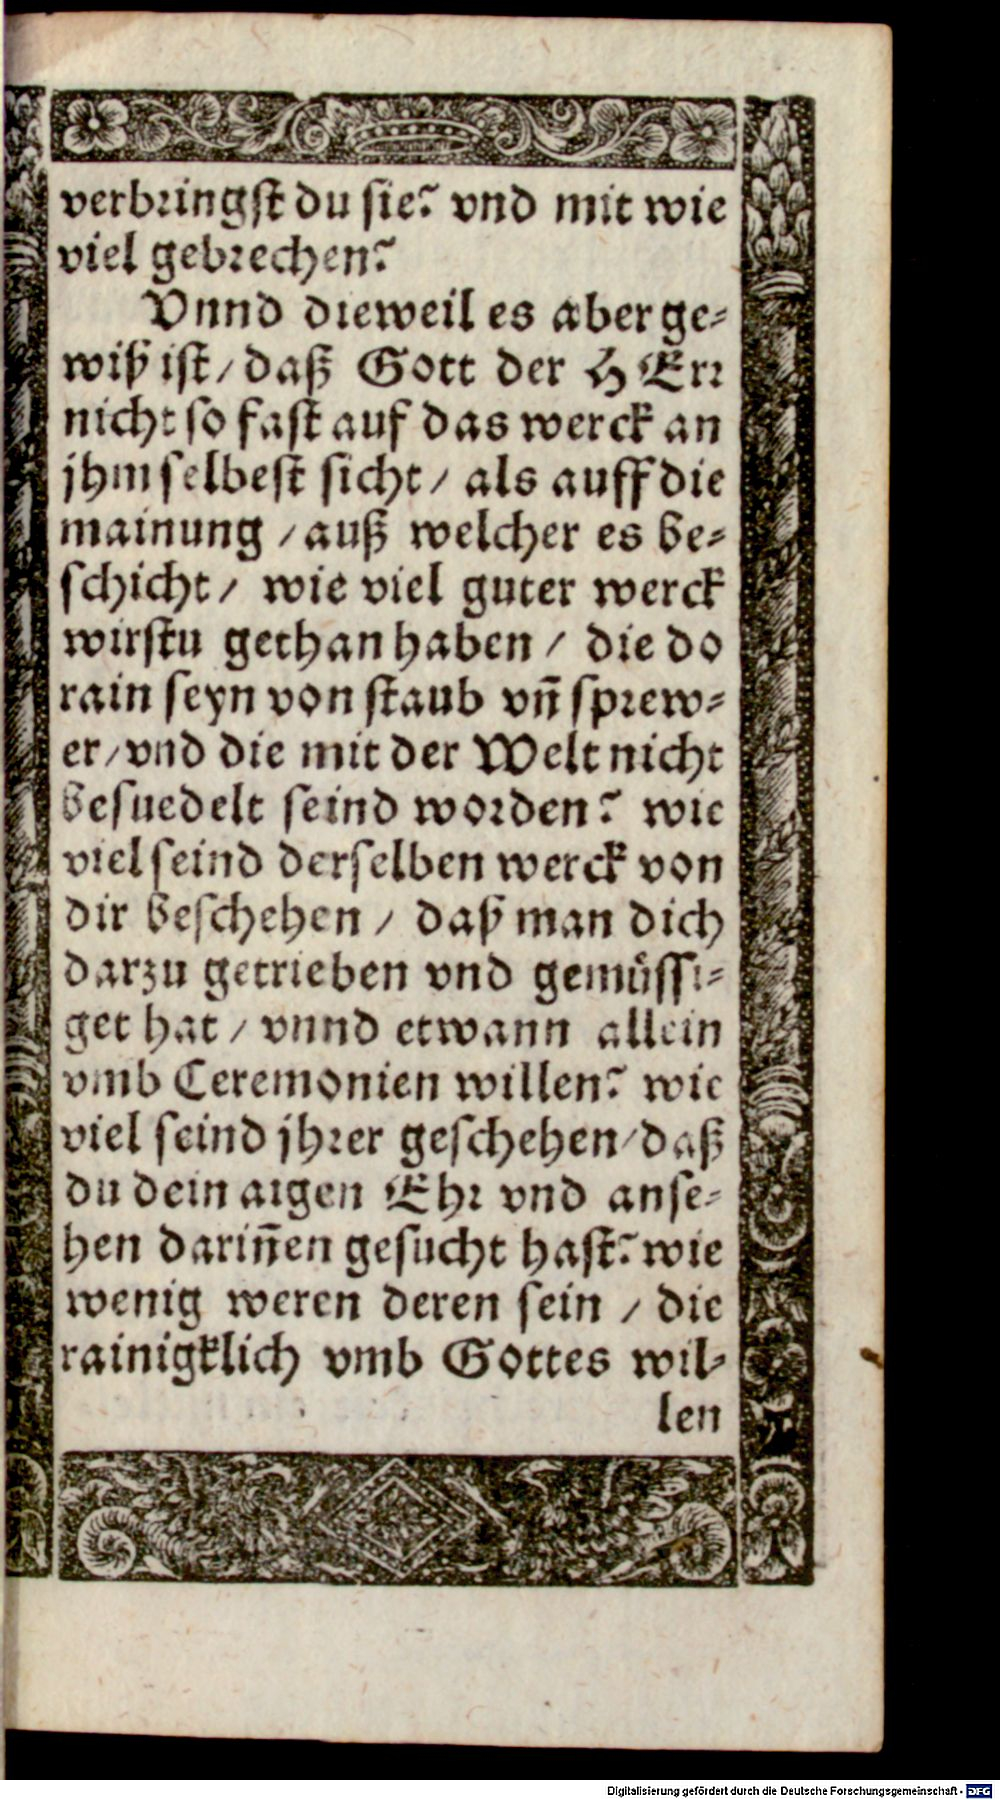 verbringst du sie? vnd mit wie
viel gebrechen?
Vnnd dieweil es aber ge-
wiß ist / daß Gott der HErr
nicht so fast auf das werck an
jhm selbest sicht / als auff die
mainung / auß welcher es be-
schicht / wie viel guter werck
wirstu gethan haben / die do
rain seyn von staub vn̄ sprew-
er / vnd die mit der Welt nicht
besuedelt seind worden? wie
viel seind derselben werck von
dir beschehen / daß man dich
darzu getrieben vnd gemüssi-
get hat / vnnd etwann allein
vmb Ceremonien willen? wie
viel seind jhrer geschehen / daß
du dein aigen Ehr vnd anse-
hen darin̄en gesucht hast? wie
wenig weren deren sein / die
rainigklich vmb Gottes wil-
len
Digitalisierung gefördert durch die Deutsche Forschungsgemeinschaft - DFG